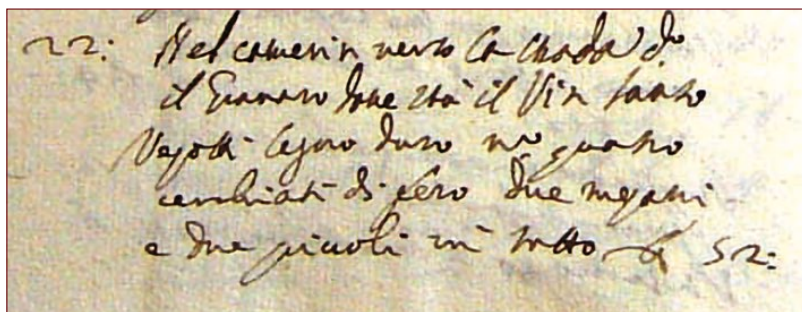 22: Nel camerin verso la strada d.o
il Granaro dove stà il Vin santo
Vezotti legno duro n.o quatro
cerchiati di fero due mezani
e due picoli in tutto 52: